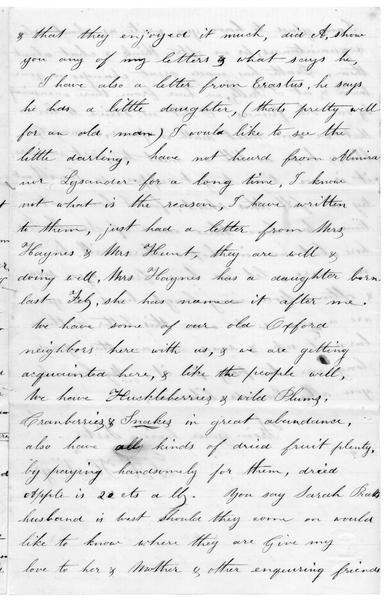 & that they enjoyed it much, did A, show
you any of my letters & what says he,
I have also a letter from Erastus, he says
he has a little daughter, (thats pretty well
for an old man) I would like to see the
little darling, have not heard from Almira
nur Lysander for a long time, I know
not what is the reason, I have written
to them, just had a letter from Mrs
Haynes & Mrs Hunt, they are well &
doing well, Mrs Haynes has a daughter born
last Feb, she has named it after me.
We have some of our old Oxford
neighbors here with us, & we are getting
acquainted here, & like the people well,
We have Huckleberries & wild Plums,
Cranberries & Snakes in great abundance,
also have all kinds of dried fruit plenty,
by paying handsomely for them, dried
Apple is 20 cts a lb. You say Sarah
husband is west should they come on would
like to know where they are Give my
love to her & Mother & other enquiring friends